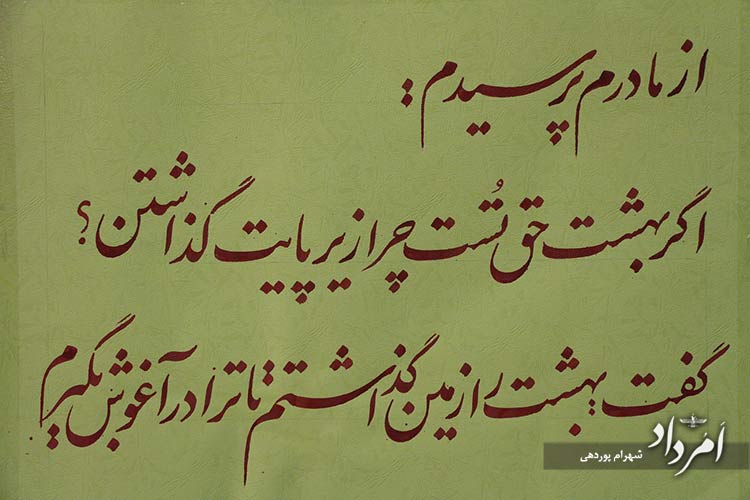 از مادرم پرسیدم :
اگر بهشت حق تُست چرا زیر پایت گذاشتن؟
گفت : بهشت را زمین گذاشتم تا ترا در آغوش بگیرم
اَمرداد
شهرام پوردهی